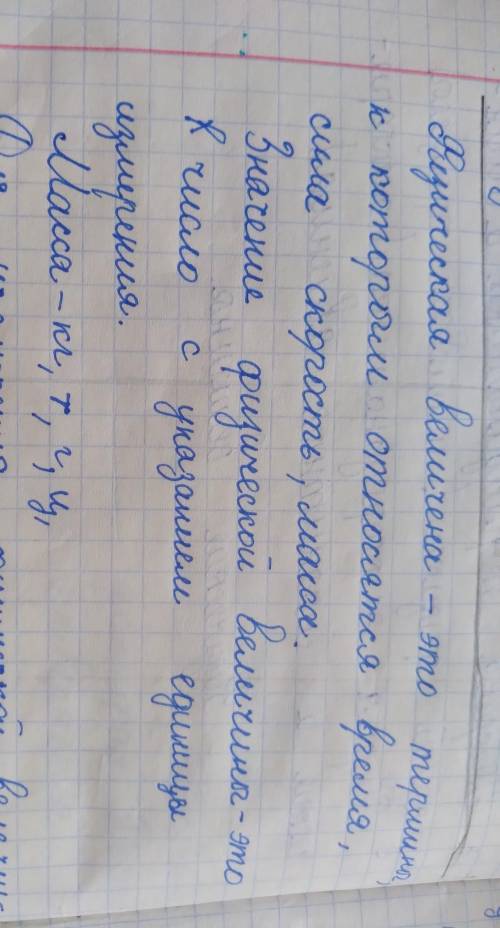 Физическая величена - это термины,
к которым относятся время,
сила скорость, масса.
Значение физической величины - это
число с указанием единицы
измерения.
Масса - кг, т, г, ц,